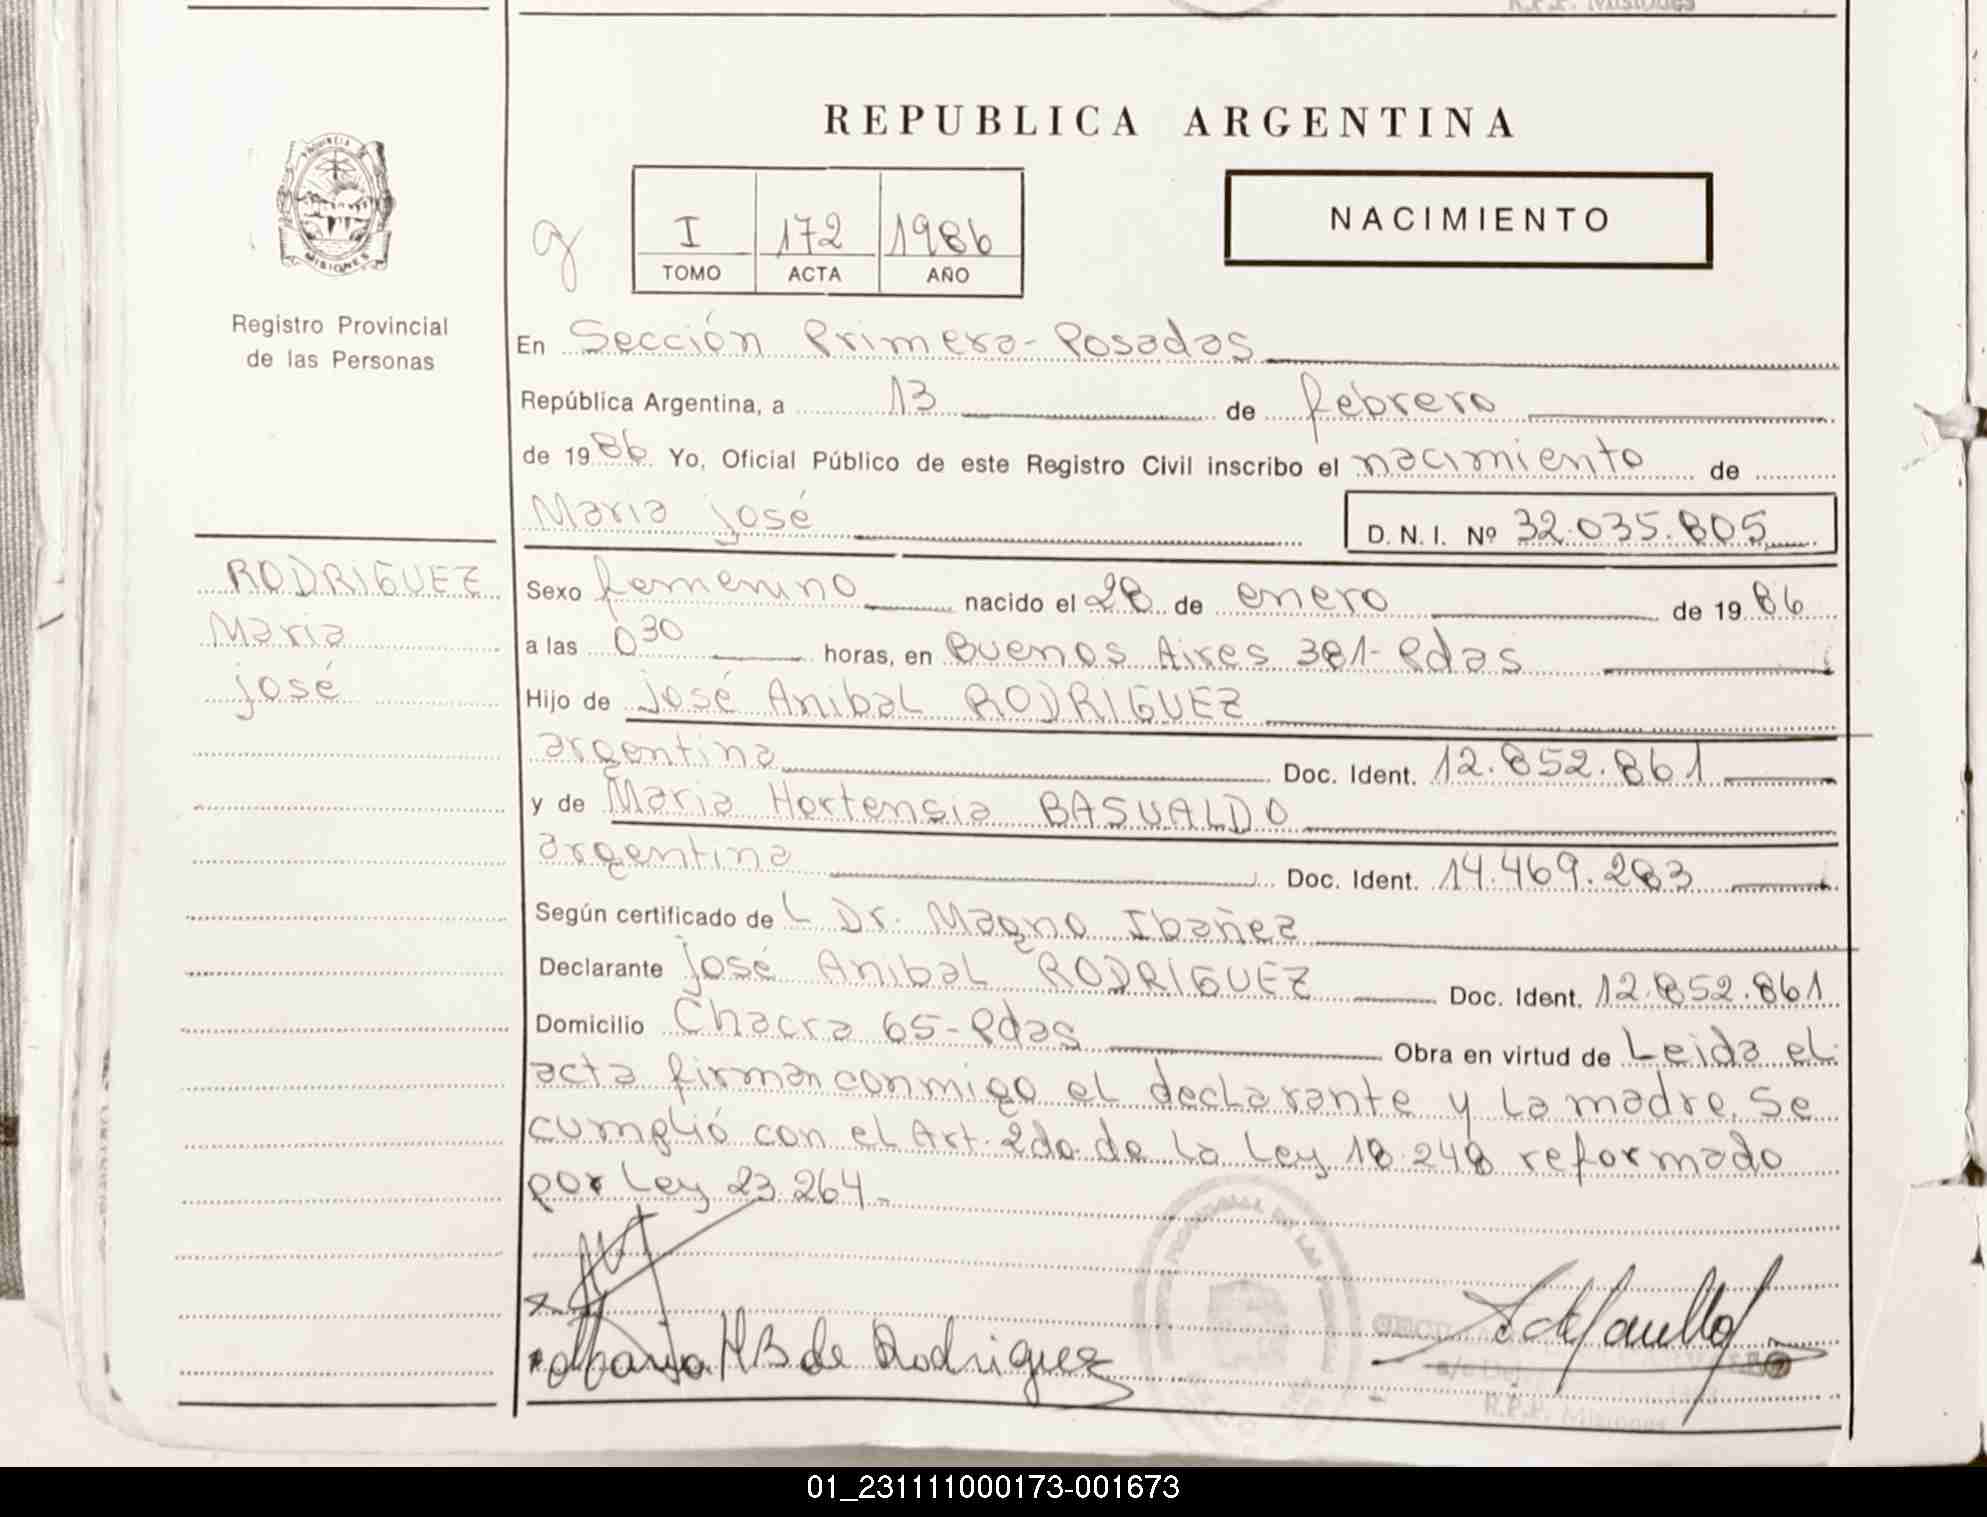 REPUBLICA ARGENTINA
PROVINCIA DE
MISIONES
Registro Provincial
de las Personas
I 172 1986
TOMO ACTA AÑO
NACIMIENTO
En Sección Primera-Posadas
República Argentina, a 13 de febrero
de 1986 Yo, Oficial Público de este Registro Civil inscribo el nacimiento de
Maria José
D.N.I. Nº 32.035.805
RODRIGUEZ
Maria
José
Sexo femenino nacido el 28 de enero de 1986
a las 0 30 horas, en Buenos Aires 381-Pdas
Hijo de José Anibal RODRIGUEZ
argentina Doc. Ident. 12.852.861
y de Maria Hortensia BASUALDO
argentina Doc. Ident. 14.469.283
Según certificado de L Dr. Magno Ibañez
Declarante José Anibal RODRIGUEZ Doc. Ident. 12.852.861
Domicilio Chacra 65-Pdas Obra en virtud de Leida el
acta firman conmigo el declarante y la madre. Se
cumplió con el Art. 2do de la Ley 18.248 reformado
por Ley 23.264-
Maria H B de Rodriguez
R.P.P. Misiones
01_231111000173-001673